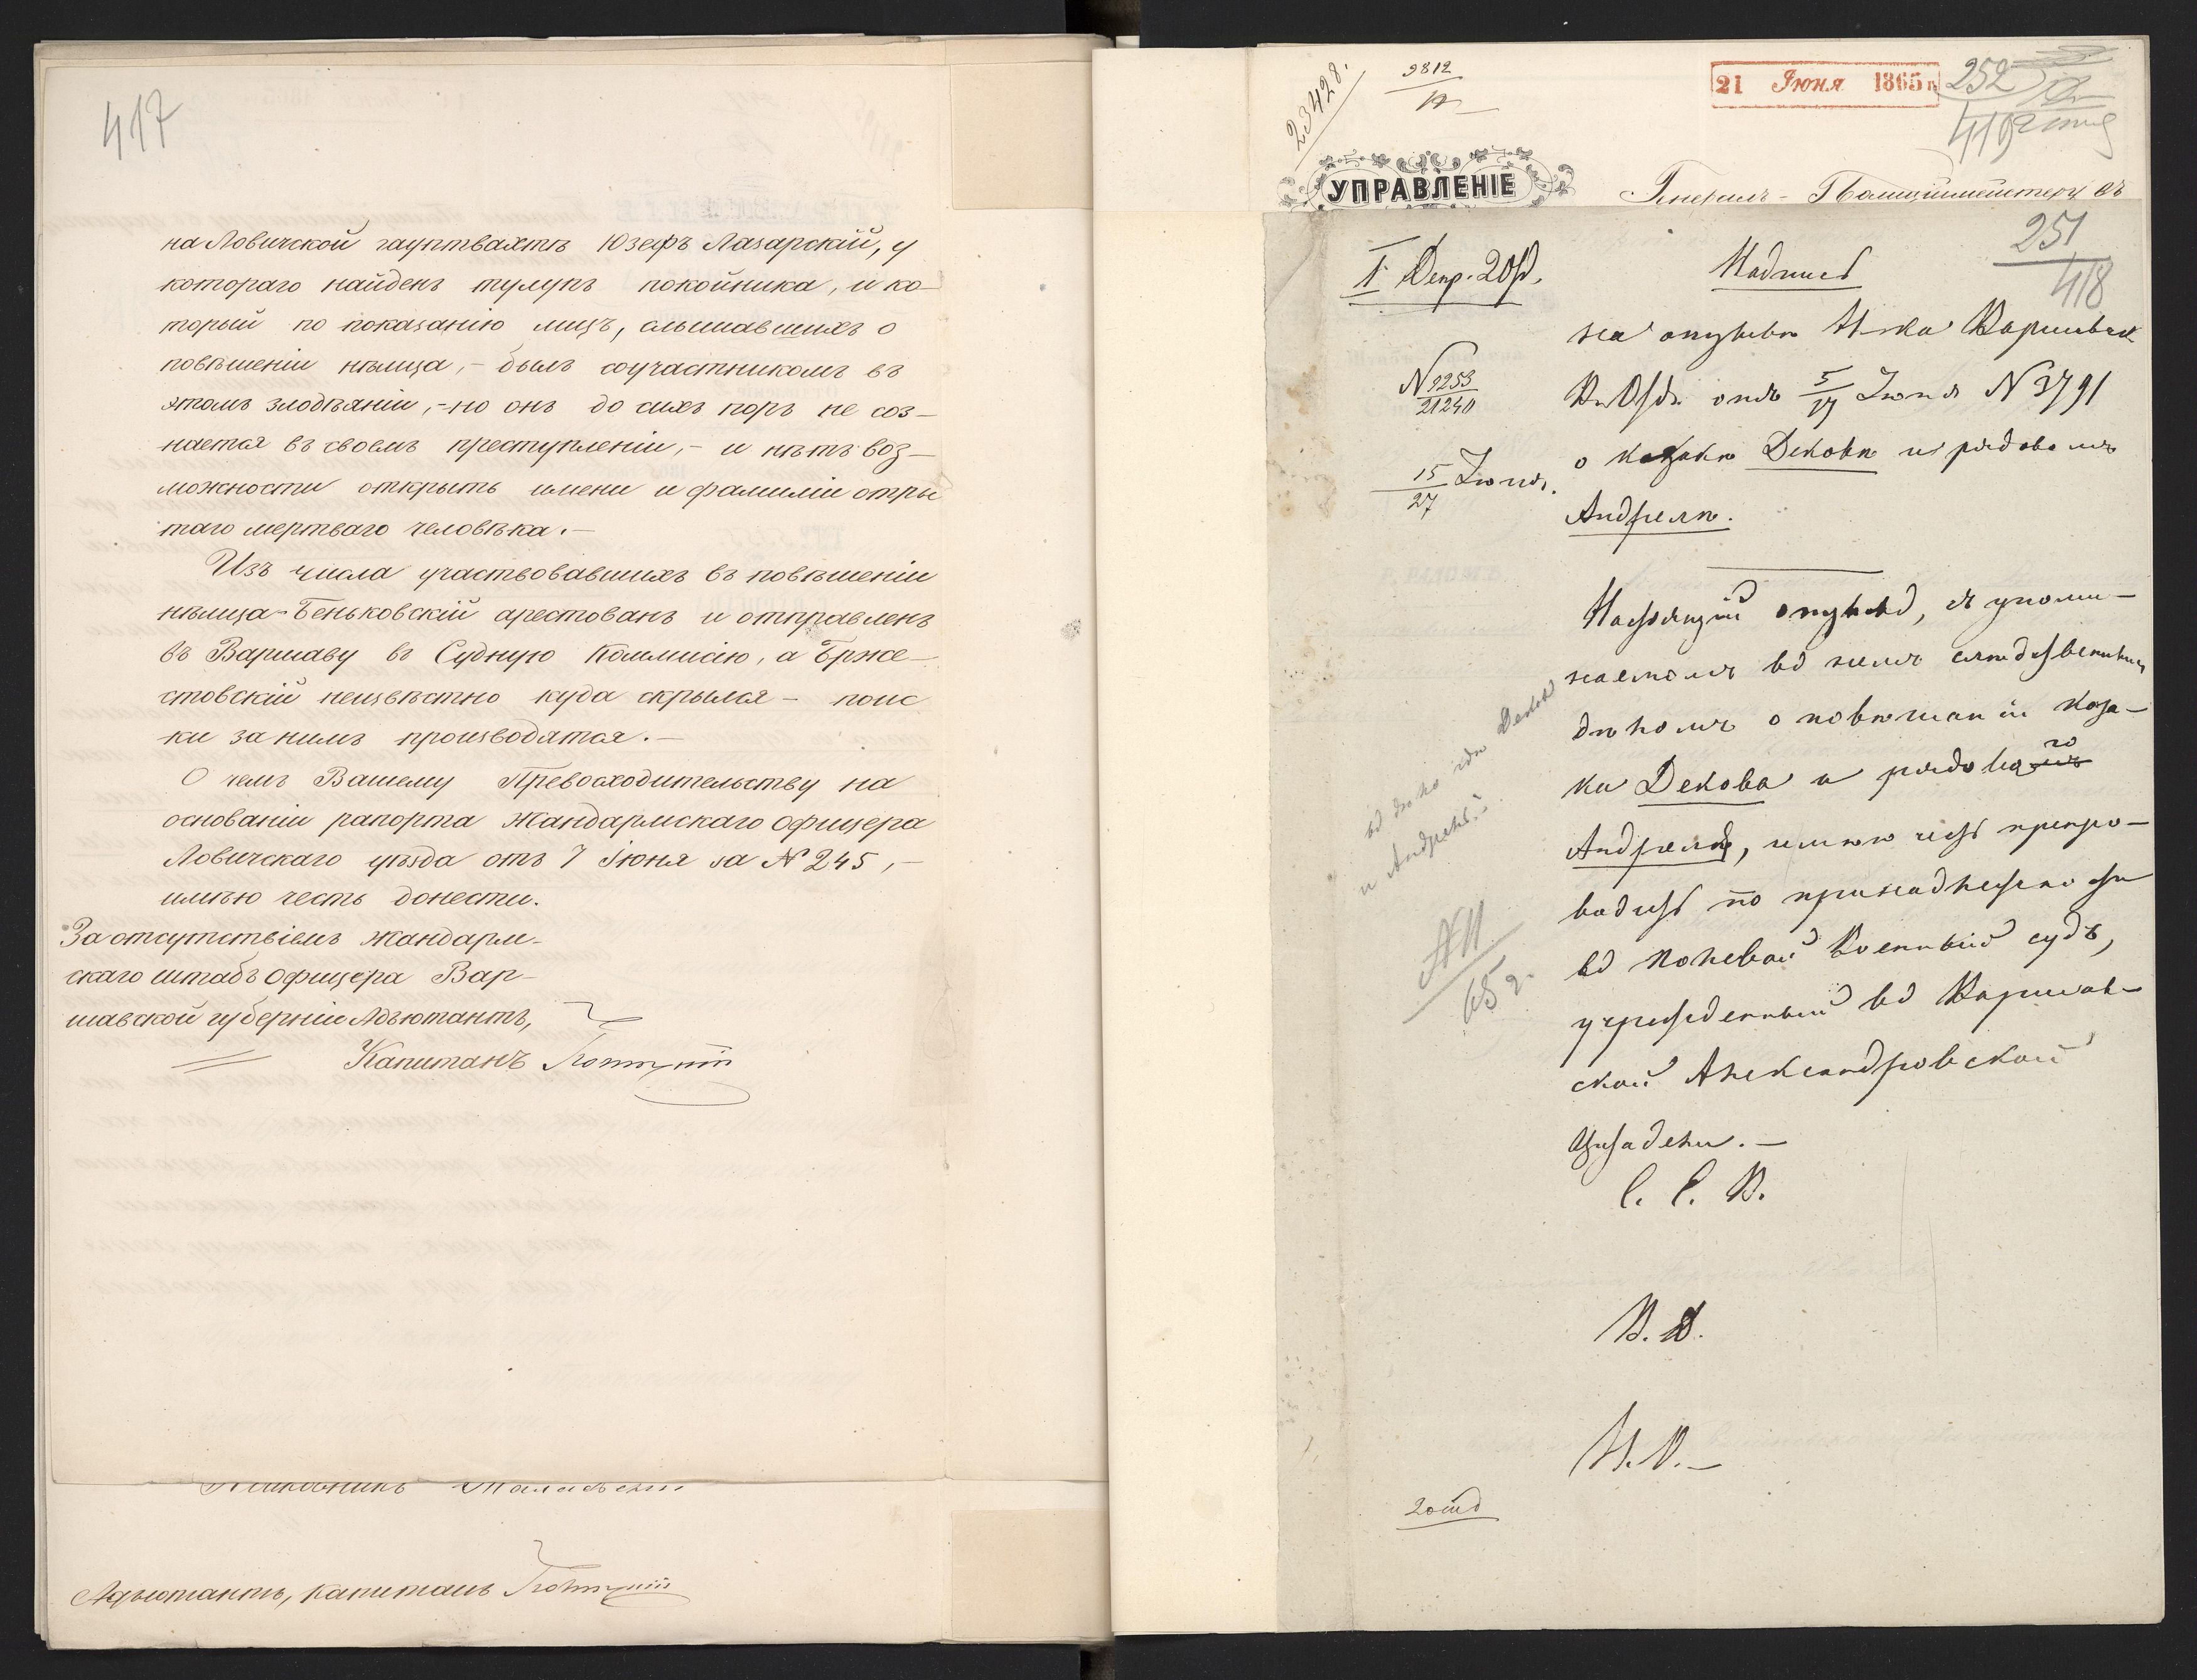 417
на Ловичской гауптвахтѣ Юзефъ Лазарскій, у
котораго найденъ тулупъ покойника, и ко-
торый по показанію лицъ, слышавшихъ о
повѣшеніи нѣмца, - былъ соучастникомъ въ
этомъ злодѣяніи, - но онъ до сихъ поръ не соз-
нается въ своемъ преступленіи, - и нѣтъ воз-
можности открыть имени и фамиліи отры
таго мертваго человѣка. -
Изъ числа участвовавшихъ въ повѣшеніи
нѣмца - Беньковскій арестованъ и отправленъ
въ Варшаву въ Судную Коммисію, а Брже-
стовскій неизвѣстно куда скрылся - поис
ки за нимъ производятся. -
О чемъ Вашему Превосходительству на
основаніи рапорта Жандармскаго Офицера
Ловичскаго уѣзда отъ 7 Іюня за № 245, -
имѣю честь донести.
За отсутствіемъ Жандарм-
скаго Штабъ Офицера Вар-
шавской губерніи Адъютантъ,
Капитанъ
Адъютантъ, Капитанъ
23428.
9812
21 Іюня 1865 г.
252
УПРАВЛЕНІЕ
Генералъ-Полицiймейстеру въ
251
418
Надпись
на отзывѣ Н-ка Варшавск
№ 9253
21240
отъ 5/17 Іюня № 3791
15/27 Іюня.
о козакѣ Дековѣ и рядовомъ
Андреяѣ.
Настоящій отзывъ, съ упоми-
наемымъ въ немъ слѣдственнымъ
дѣломъ о повѣшаніи Коза-
ка Декова и рядоваго
Андреяѣ, имѣю честь препро-
водить по принадлежности
въ Полевой Военный судъ,
учрежденный въ Варшав-
ской Александровской
Цитадели. -
С. С. В.
65 г.
В. Д.
Н. О. -
2 отд